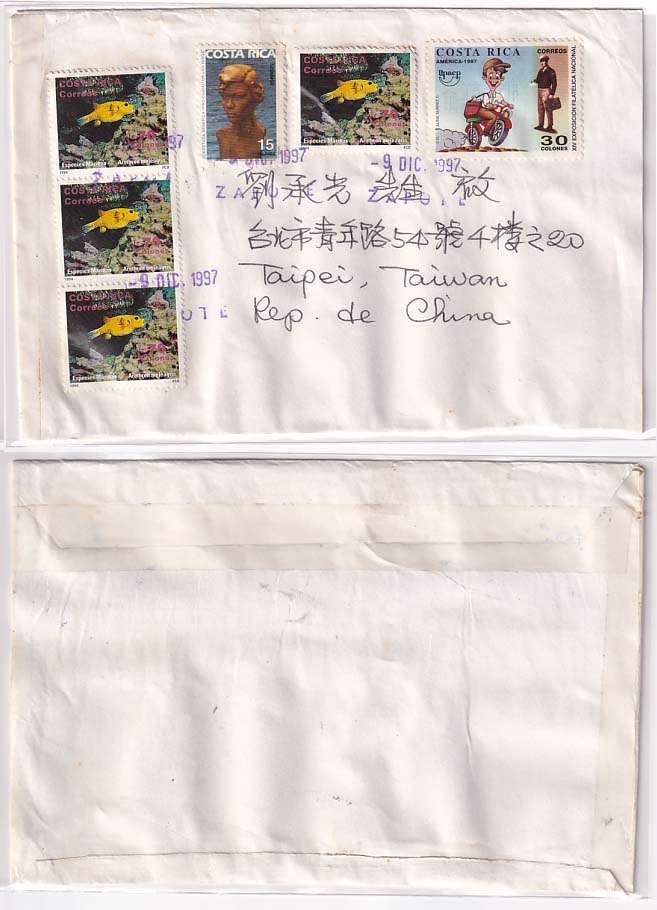 COSTA RICA
Correos
Especies Marinas Arothron meleagris
1994
COSTA RICA
Correos
Especies Marinas Arothron meleagris
1994
COSTA RICA
Correos
Especies Marinas Arothron meleagris
1994
COSTA RICA
15
COSTA RICA
Correos
Especies Marinas Arothron meleagris
1994
COSTA RICA
AMÉRICA-1997
Upaep
CORREOS
XIV EXPOSICIÓN FILATÉLICA NACIONAL
30
COLONES
1997
-9 DIC. 1997
ZAPOTE
ZAPOTE
-9 DIC. 1997
劉承光 先生 啟
台北市青年路54號4樓之20
Taipei, Taiwan
Rep. de China